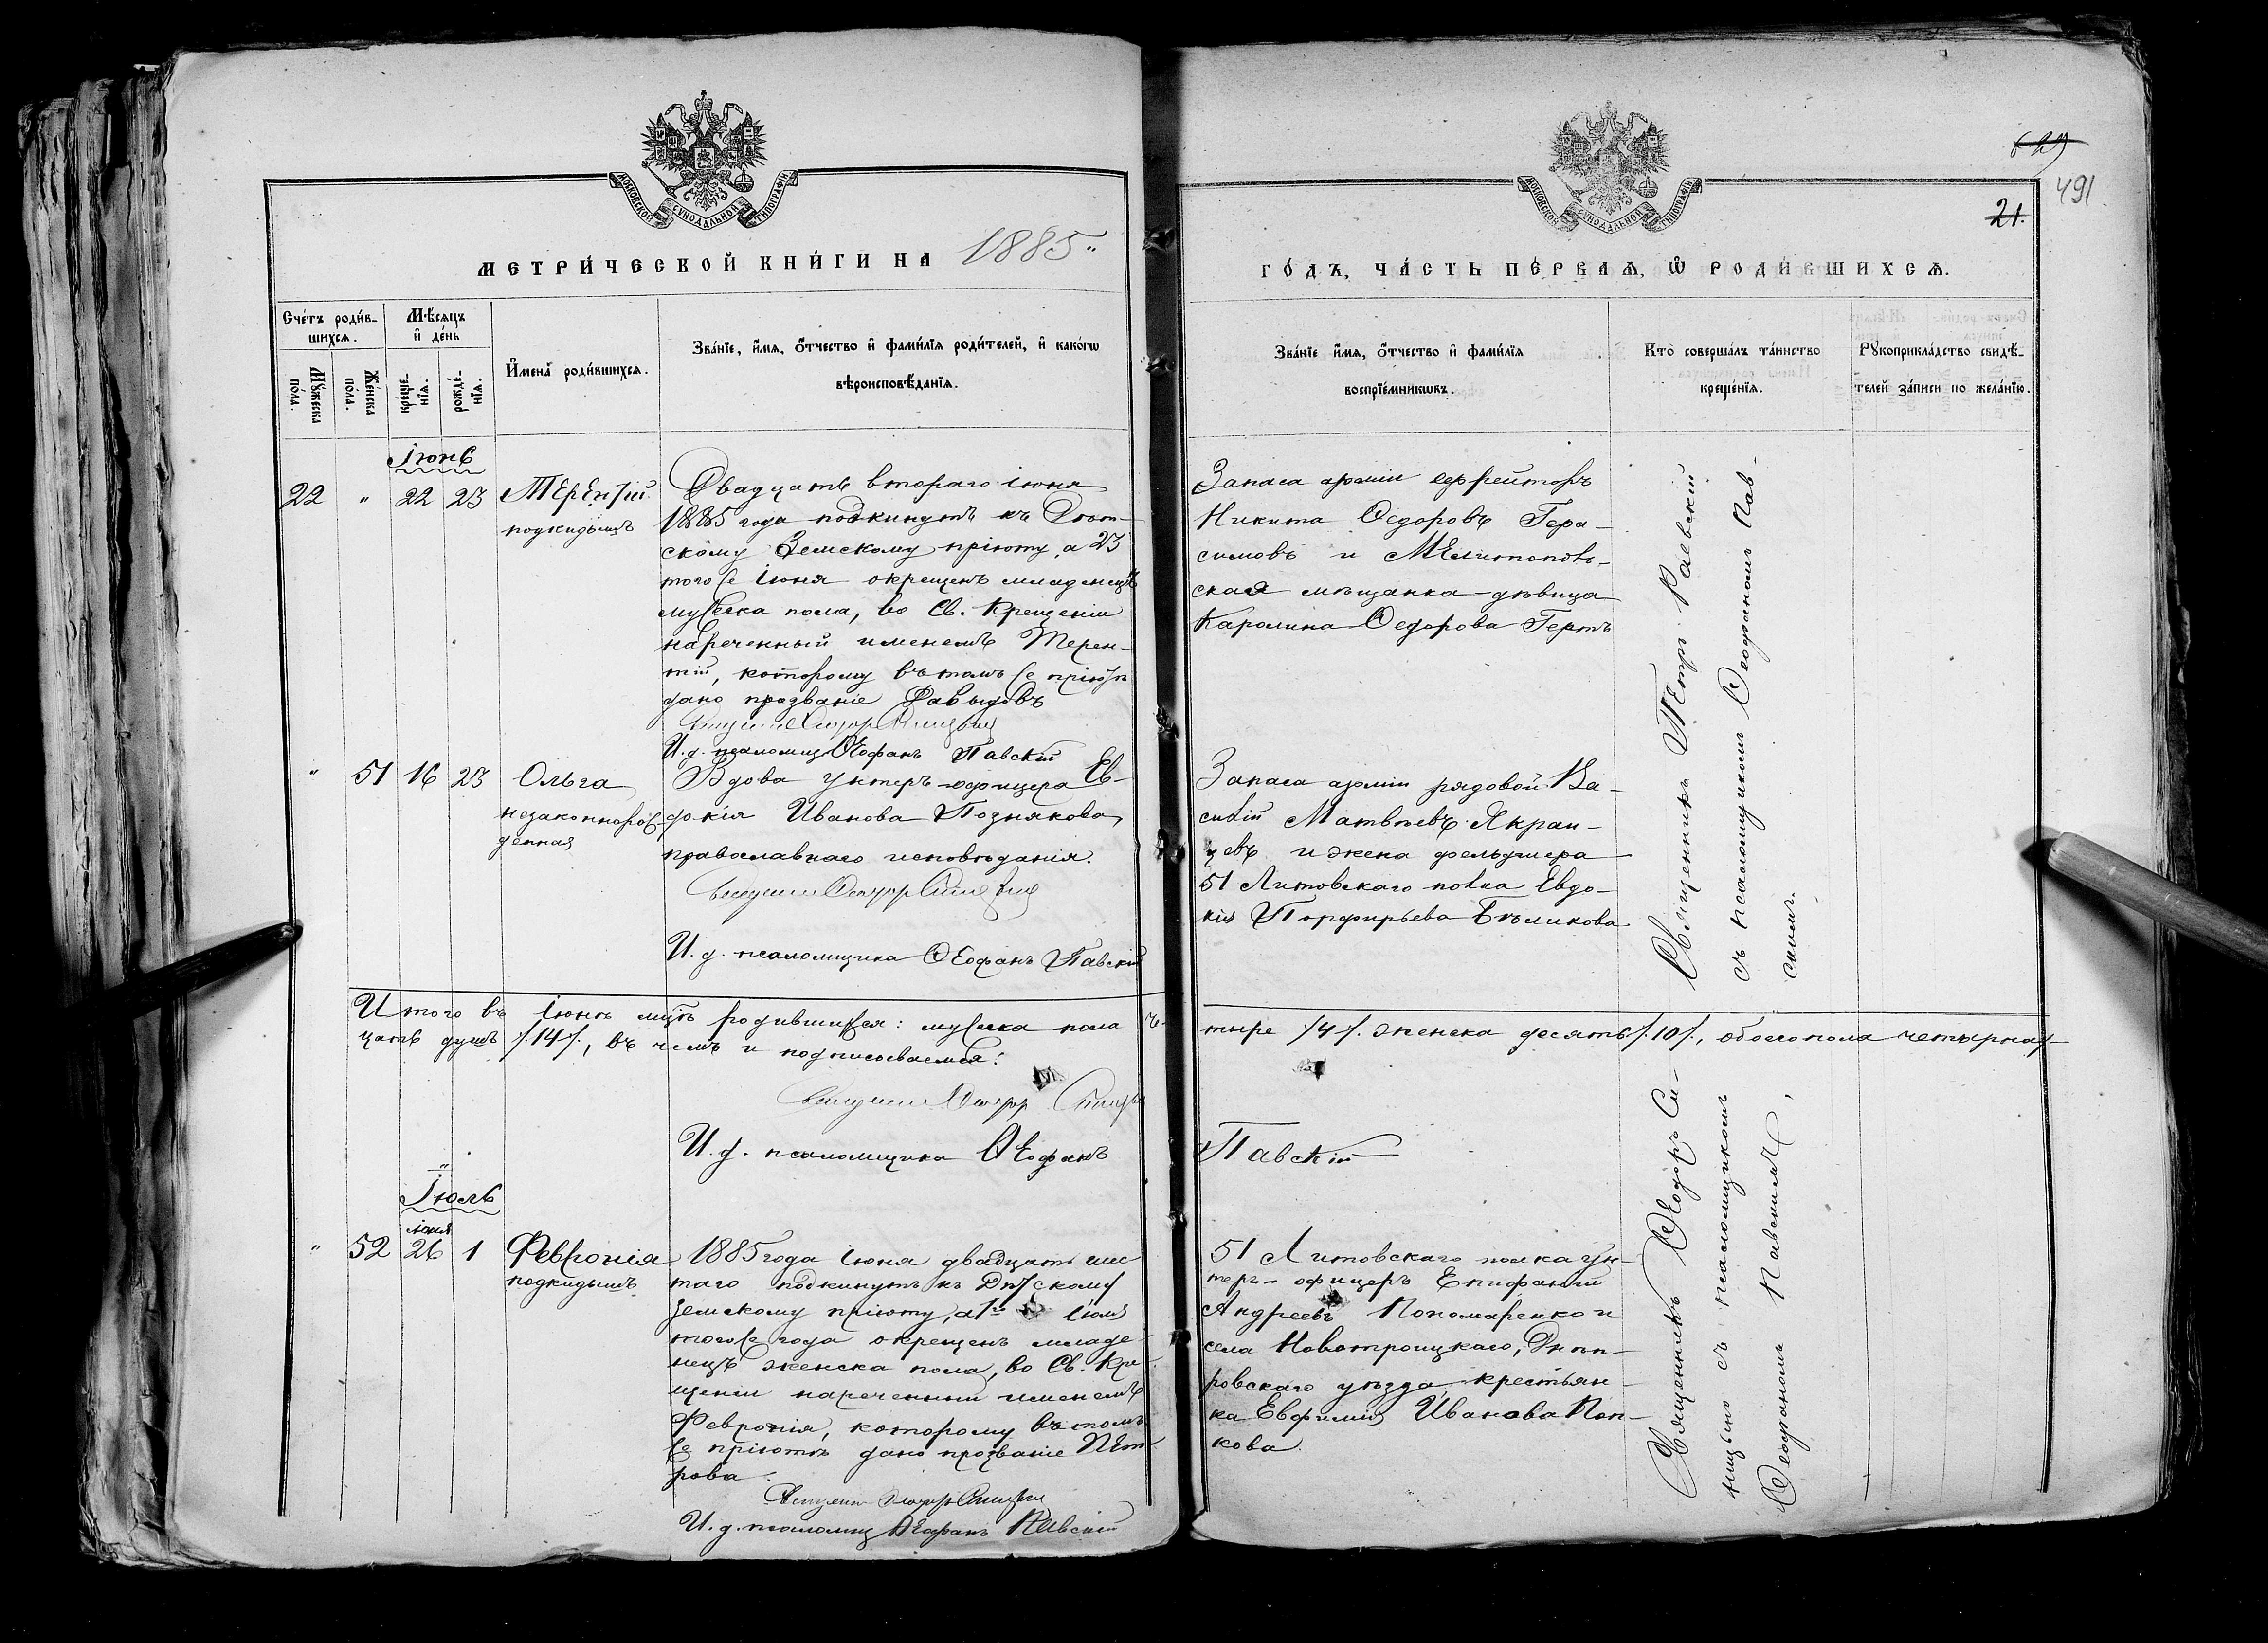 629
491
21.
МОСКОВСКОЙ СУНОДАЛЬНОЙ ТИПОГРАФІИ
МОСКОВСКОЙ СУНОДАЛЬНОЙ ТИПОГРАФІИ
МЕТРИ́ЧЕСКОЙ КНИ́ГИ НА 1885
ГО́ДЪ, ЧА́СТЬ ПЕ́РВАѦ, Ѿ РОДИ́ВШИХСѦ.
Сче́тъ роди́в-
шихсѧ.
Мѣ́сяцъ
и҆ де́нь
Мꙋ́жеска
пола.
Же́нска
пола.
креще́-
нїѧ.
рожде́-
нїѧ.
И҆мена̀ роди́вшихсѧ.
Зва́нїе, и҆́мѧ, ѻ҆́тчество и҆ фами́лїѧ роди́телей, и҆ како́гѡ
вѣроисповѣ́данїѧ.
Зва́нїе и҆́мѧ, ѻ҆́тчество и҆ фами́лїѧ
воспрїе́мникѡвъ.
Кто̀ соверша́лъ та́инство
креще́нїѧ.
Рꙋкоприкла́дство свидѣ́-
телей за́писи по жела́нїю.
Іюнь
22 " 22 23 Терентій
подкидышъ
Двадцать втораго іюня
1885 года подкинутъ къ Дѣт-
скому Земскому пріюту, а 23
тогоже іюня окрещенъ младенецъ
мужеска пола, во Св. Крещеніи
нареченный именемъ Терен-
тій, которому въ томъ же пріютѣ
дано прозваніе Давыдовъ
И. д. псаломщ. Ѳеофанъ Павскій
Запаса арміи ефрейторъ
Никита Ѳедоровъ Гера-
симовъ и Мелитополь-
ская мѣщанка-дѣвица
Каролина Ѳедорова Гертъ
Священникъ Петръ Раевскій
съ псаломщикомъ Ѳеофаномъ Пав-
скимъ.
" 51 16 23 Ольга
незаконнорож-
денная
Вдова унтеръ-офицера Ев-
докія Иванова Познякова,
православнаго исповѣданія.
И. д. псаломщика Ѳеофанъ Павскій
Запаса арміи рядовой Ва-
силій Матвѣевъ Якран-
цевъ и жена фельдшера
51 Литовскаго полка Евдо-
кія Порфирьева Бѣликова
Итого въ іюнѣ мцѣ родившихся: мужеска пола че-
тыре /4/. женска десять /.10/., обоего пола четырнад-
цать душъ /.14/., въ чемъ и подписываемся:
И. д. псаломщика Ѳеофанъ
Павскій
Іюль
52 іюня 26 1 Февронія
подкидышъ
1885 года іюня двадцать шес
таго подкинутъ къ Дѣтскому
Земскому пріюту, а 1го іюля
тогоже года окрещенъ младе-
нецъ женска пола, во Св. Кре-
щеніи нареченный именемъ
Февронія, которому въ томъ
же пріютѣ дано прозваніе Пет-
рова.
И. д. псаломщ. Ѳеофанъ Павскій
51 Литовскаго полка ун-
теръ-офицеръ Епифаній
Андреевъ Пономаренко и
села Новотроицкаго, Днѣп-
ровскаго уѣзда, крестьян-
ка Евфимія Иванова Поп-
кова.
Священникъ Ѳеодоръ Си-
ницынъ съ псаломщикомъ
Ѳеофаномъ Павскимъ